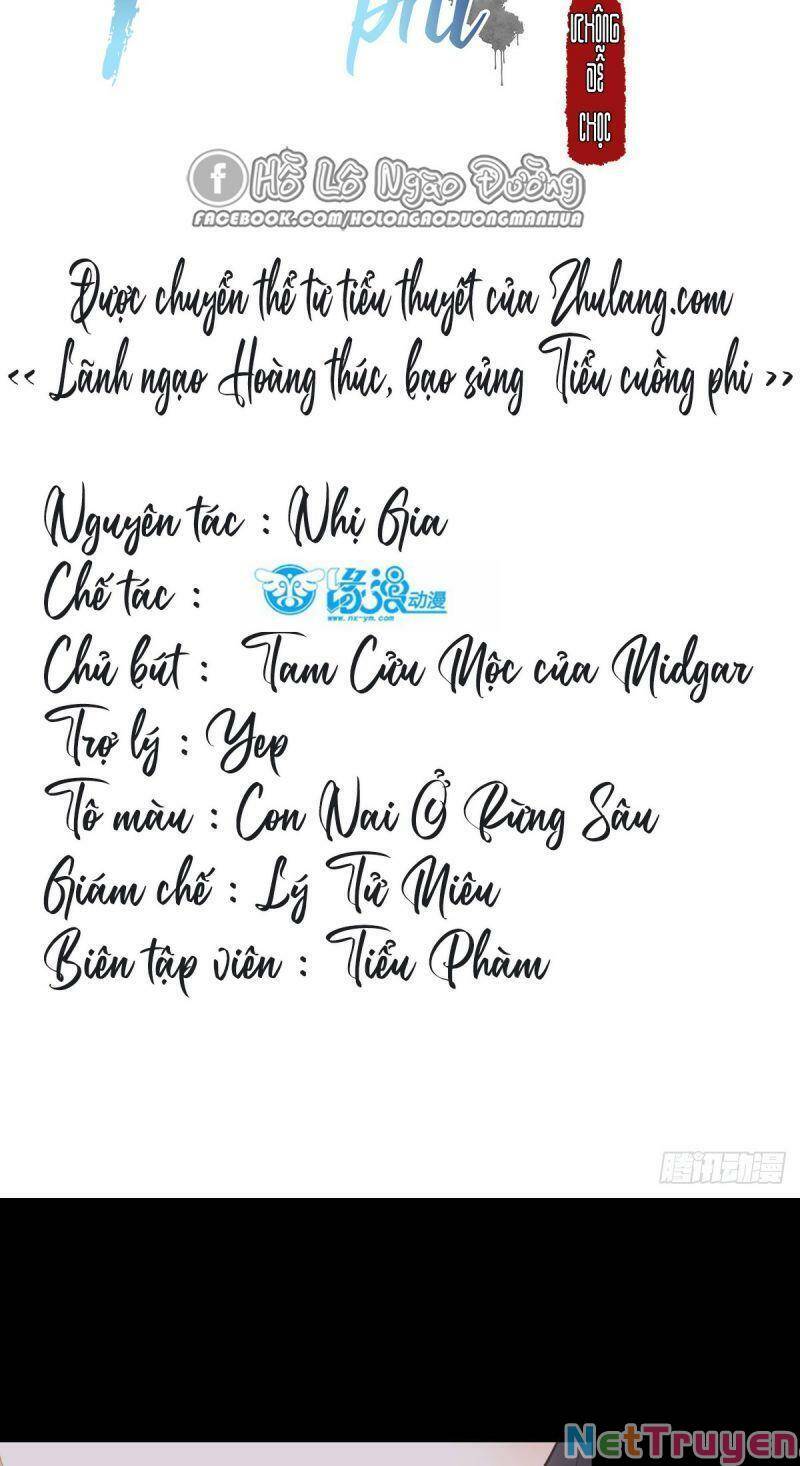 phi
KHÔNG
DỄ
CHỌC
f Hồ Lô Ngào Đường
FACEBOOK.COM/HOLONGAODUONGMANHUA
Được chuyển thể từ tiểu thuyết của Zhulang.com
<< Lãnh ngạo Hoàng thúc, bạo sủng Tiểu cuồng phi >>
Nguyên tác : Nhị Gia
Chế tác : 缘漫动漫
www.nx-ym.com
Chủ bút : Tam Cửu Mộc của Midgar
Trợ lý : Yep
Tô màu : Con Nai Ở Rừng Sâu
Giám chế : Lý Tử Miêu
Biên tập viên : Tiểu Phàm
腾讯动漫
NetTruyen